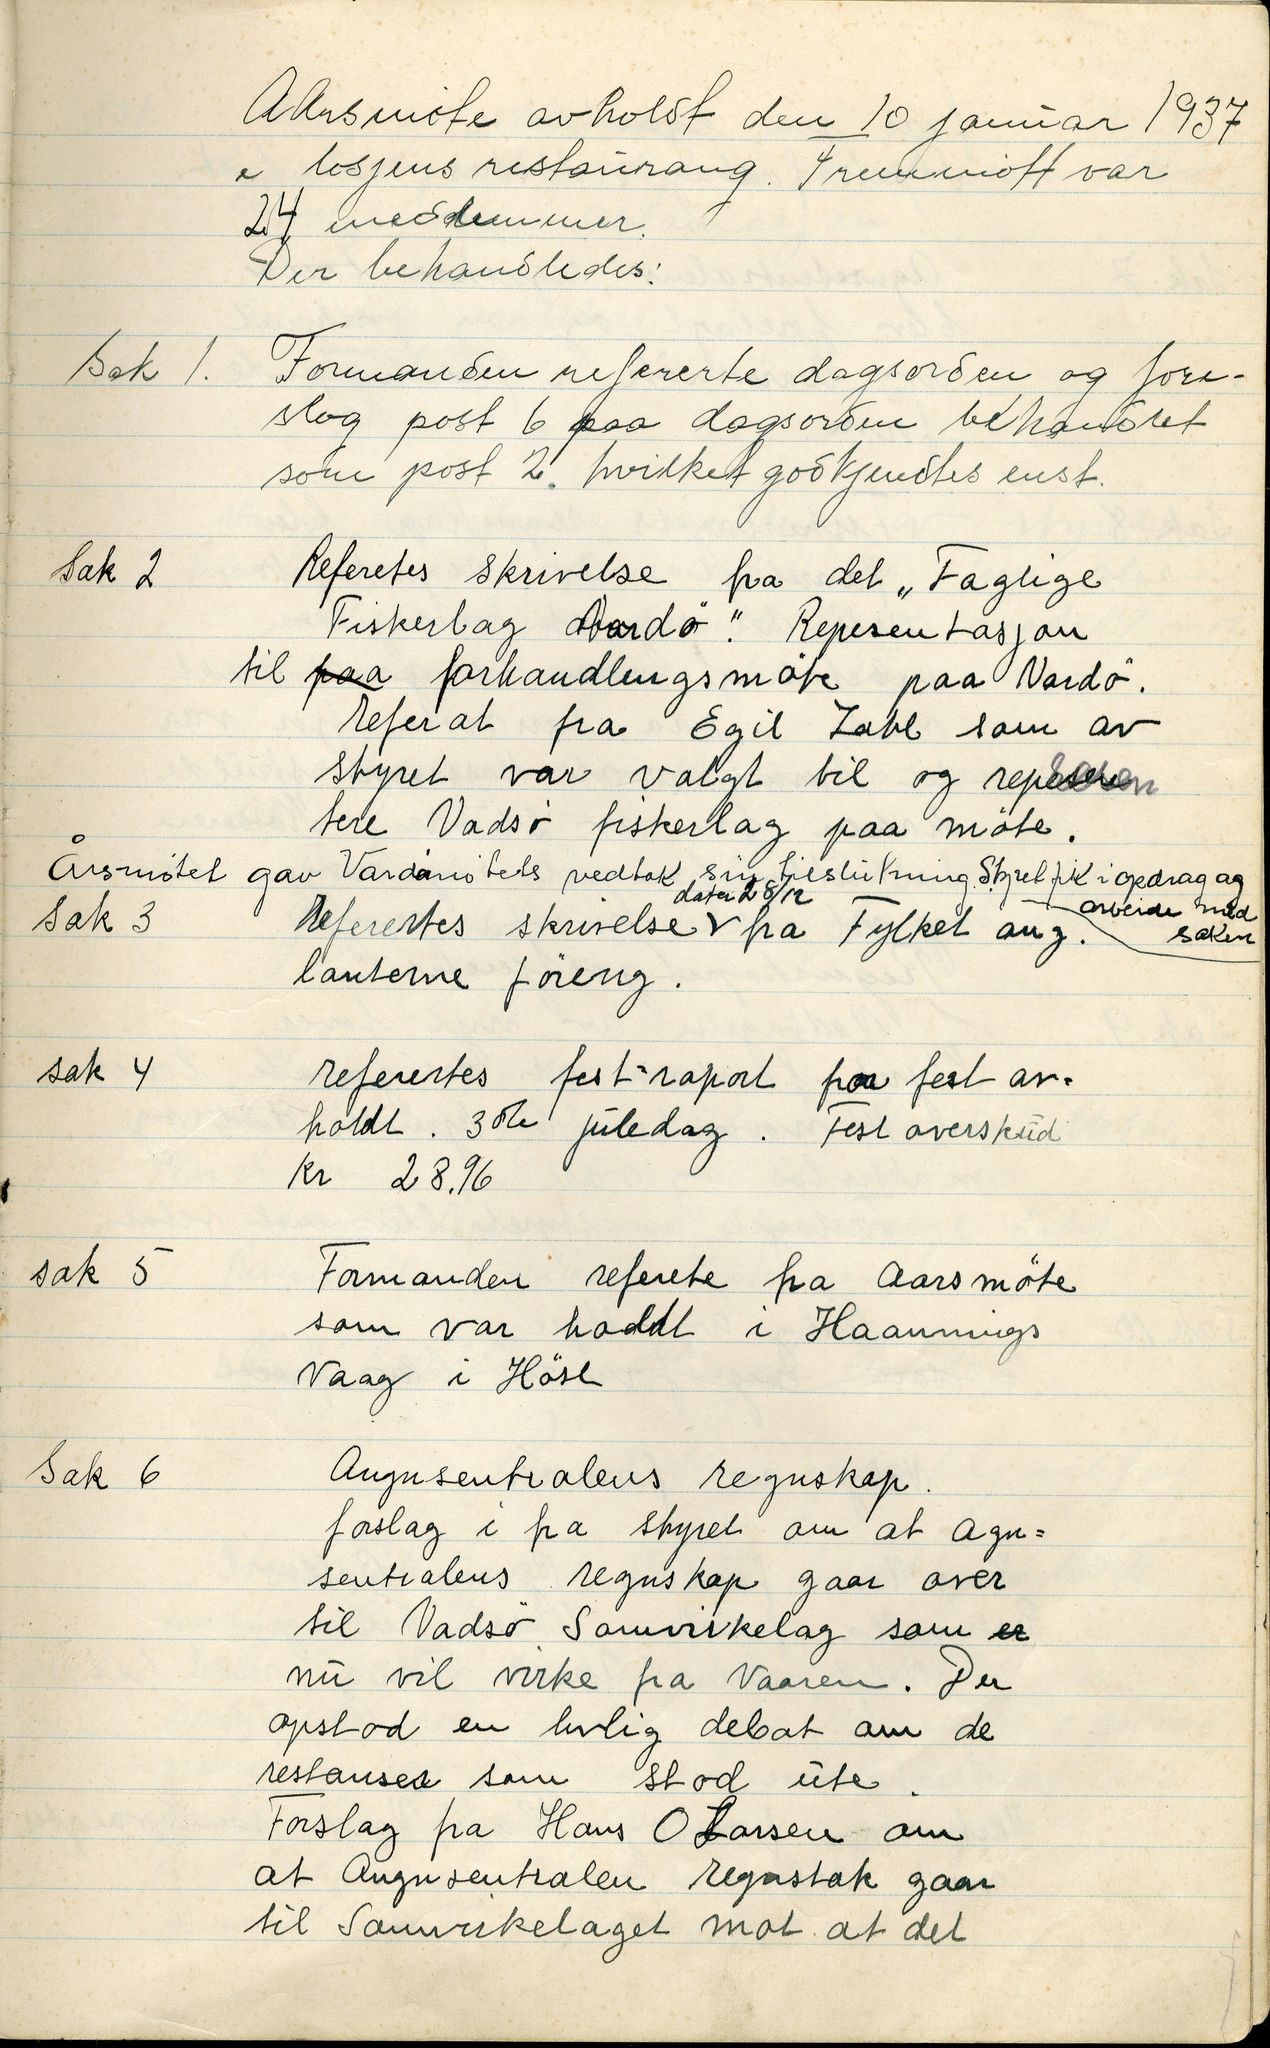 AArsmöte avholdt den 10 januar 1937
i losjens restaurang. Fremmött var
24 medlemmer.
Der behandledes:
Sak 1. Formanden refererte dagsorden og fore-
slog post 6 paa dagsorden behandlet
som post 2. hvilket godkjendtes enst.
Sak 2 Referetes skrivelse fra det „Faglige
Fiskerlag Vardö". Repesentasjon
til paa forhandlingsmöte paa Vardö.
Referat fra Egil Zahl som av
styret var valgt til og represen
tere Vadsö fiskerlag paa möte.
Årsmötet gav Vardömötets vedtak sin tilslutning. Styret fik i opdrag og
arbeide med
saken
dater 28/12
Sak 3 Referertes skrivelse V fra Fylket ang.
lanterne föring.
sak 4 referertes fest-raport fra fest av-
holdt. 3de juledag. Fest overskud
Kr 28.96
sak 5 Formanden referete fra Aarsmöte
som var holdt i Haannings
Vaag i Höst
Sak 6 Angnsentralens regnskap.
forslag i fra styret om at Agn=
sentralens regnskap gaar over
til Vadsö Samvirkelag som er
nu vil virke fra Vaaren. Der
opstod en livlig debat om de
restanser som stod ute.
Forslag fra Hans O Larsen om
at Angnsentralen regnskak gaar
til Samvirkelaget mot at det